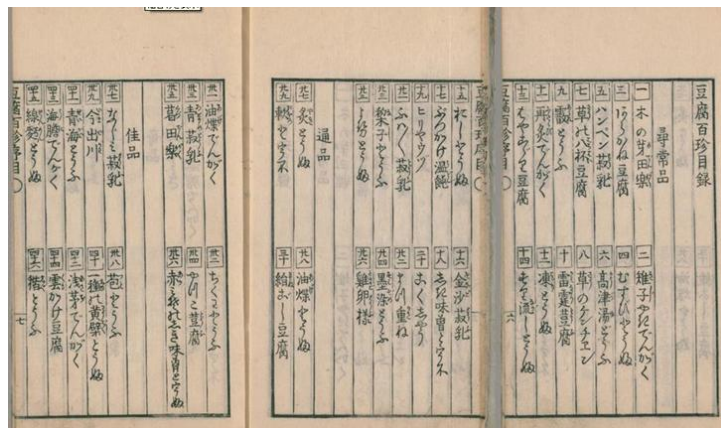 豆腐百珍目録
尋常品
一 木の芽田楽 二 雉子やきでんがく
三 あらかね豆腐 四 むすびとうふ
五 ハンペン菽乳 六 高津湯とうふ
七 草の八杯豆腐 八 草のケンチエン
九 霰とうふ 十 雷霆豆腐
十一 再炙でんがく 十二 凍とうふ
十三 豆腐 十四 すり流しとうふ
豆腐百珍序目 六
十五 とうふ 十六 金沙菽乳
十七 ぶつかけ温飩 十八 しき味噌とうふ
十九 ヒリヤウヅ 二十 こくしやう
廿一 ふはふは菽乳 廿二 重ね
廿三 梨子やきとうふ 廿四 墨染とうふ
廿五 とうふ 廿六 雞卵様
通品
廿七 炙とうふ 廿八 油煠とうふ
廿九 軟とうふ 三十 絹ごし豆腐
卅一 油煠でんがく 卅二 ちくわとうふ
卅三 青菽乳 卅四 やつこ豆腐
卅五 葛田楽 卅六 赤みそのしき味噌とうふ
佳品
卅七 なじみ菽乳 卅八 苞とうふ
卅九 今出川 四十 一種の黄檗とうふ
四一 青海とうふ 四二 浅茅でんがく
四三 海膽でんがく 四四 雲かけ豆腐
四五 線麪とうふ 四六 とうふ
豆腐百珍序目 七